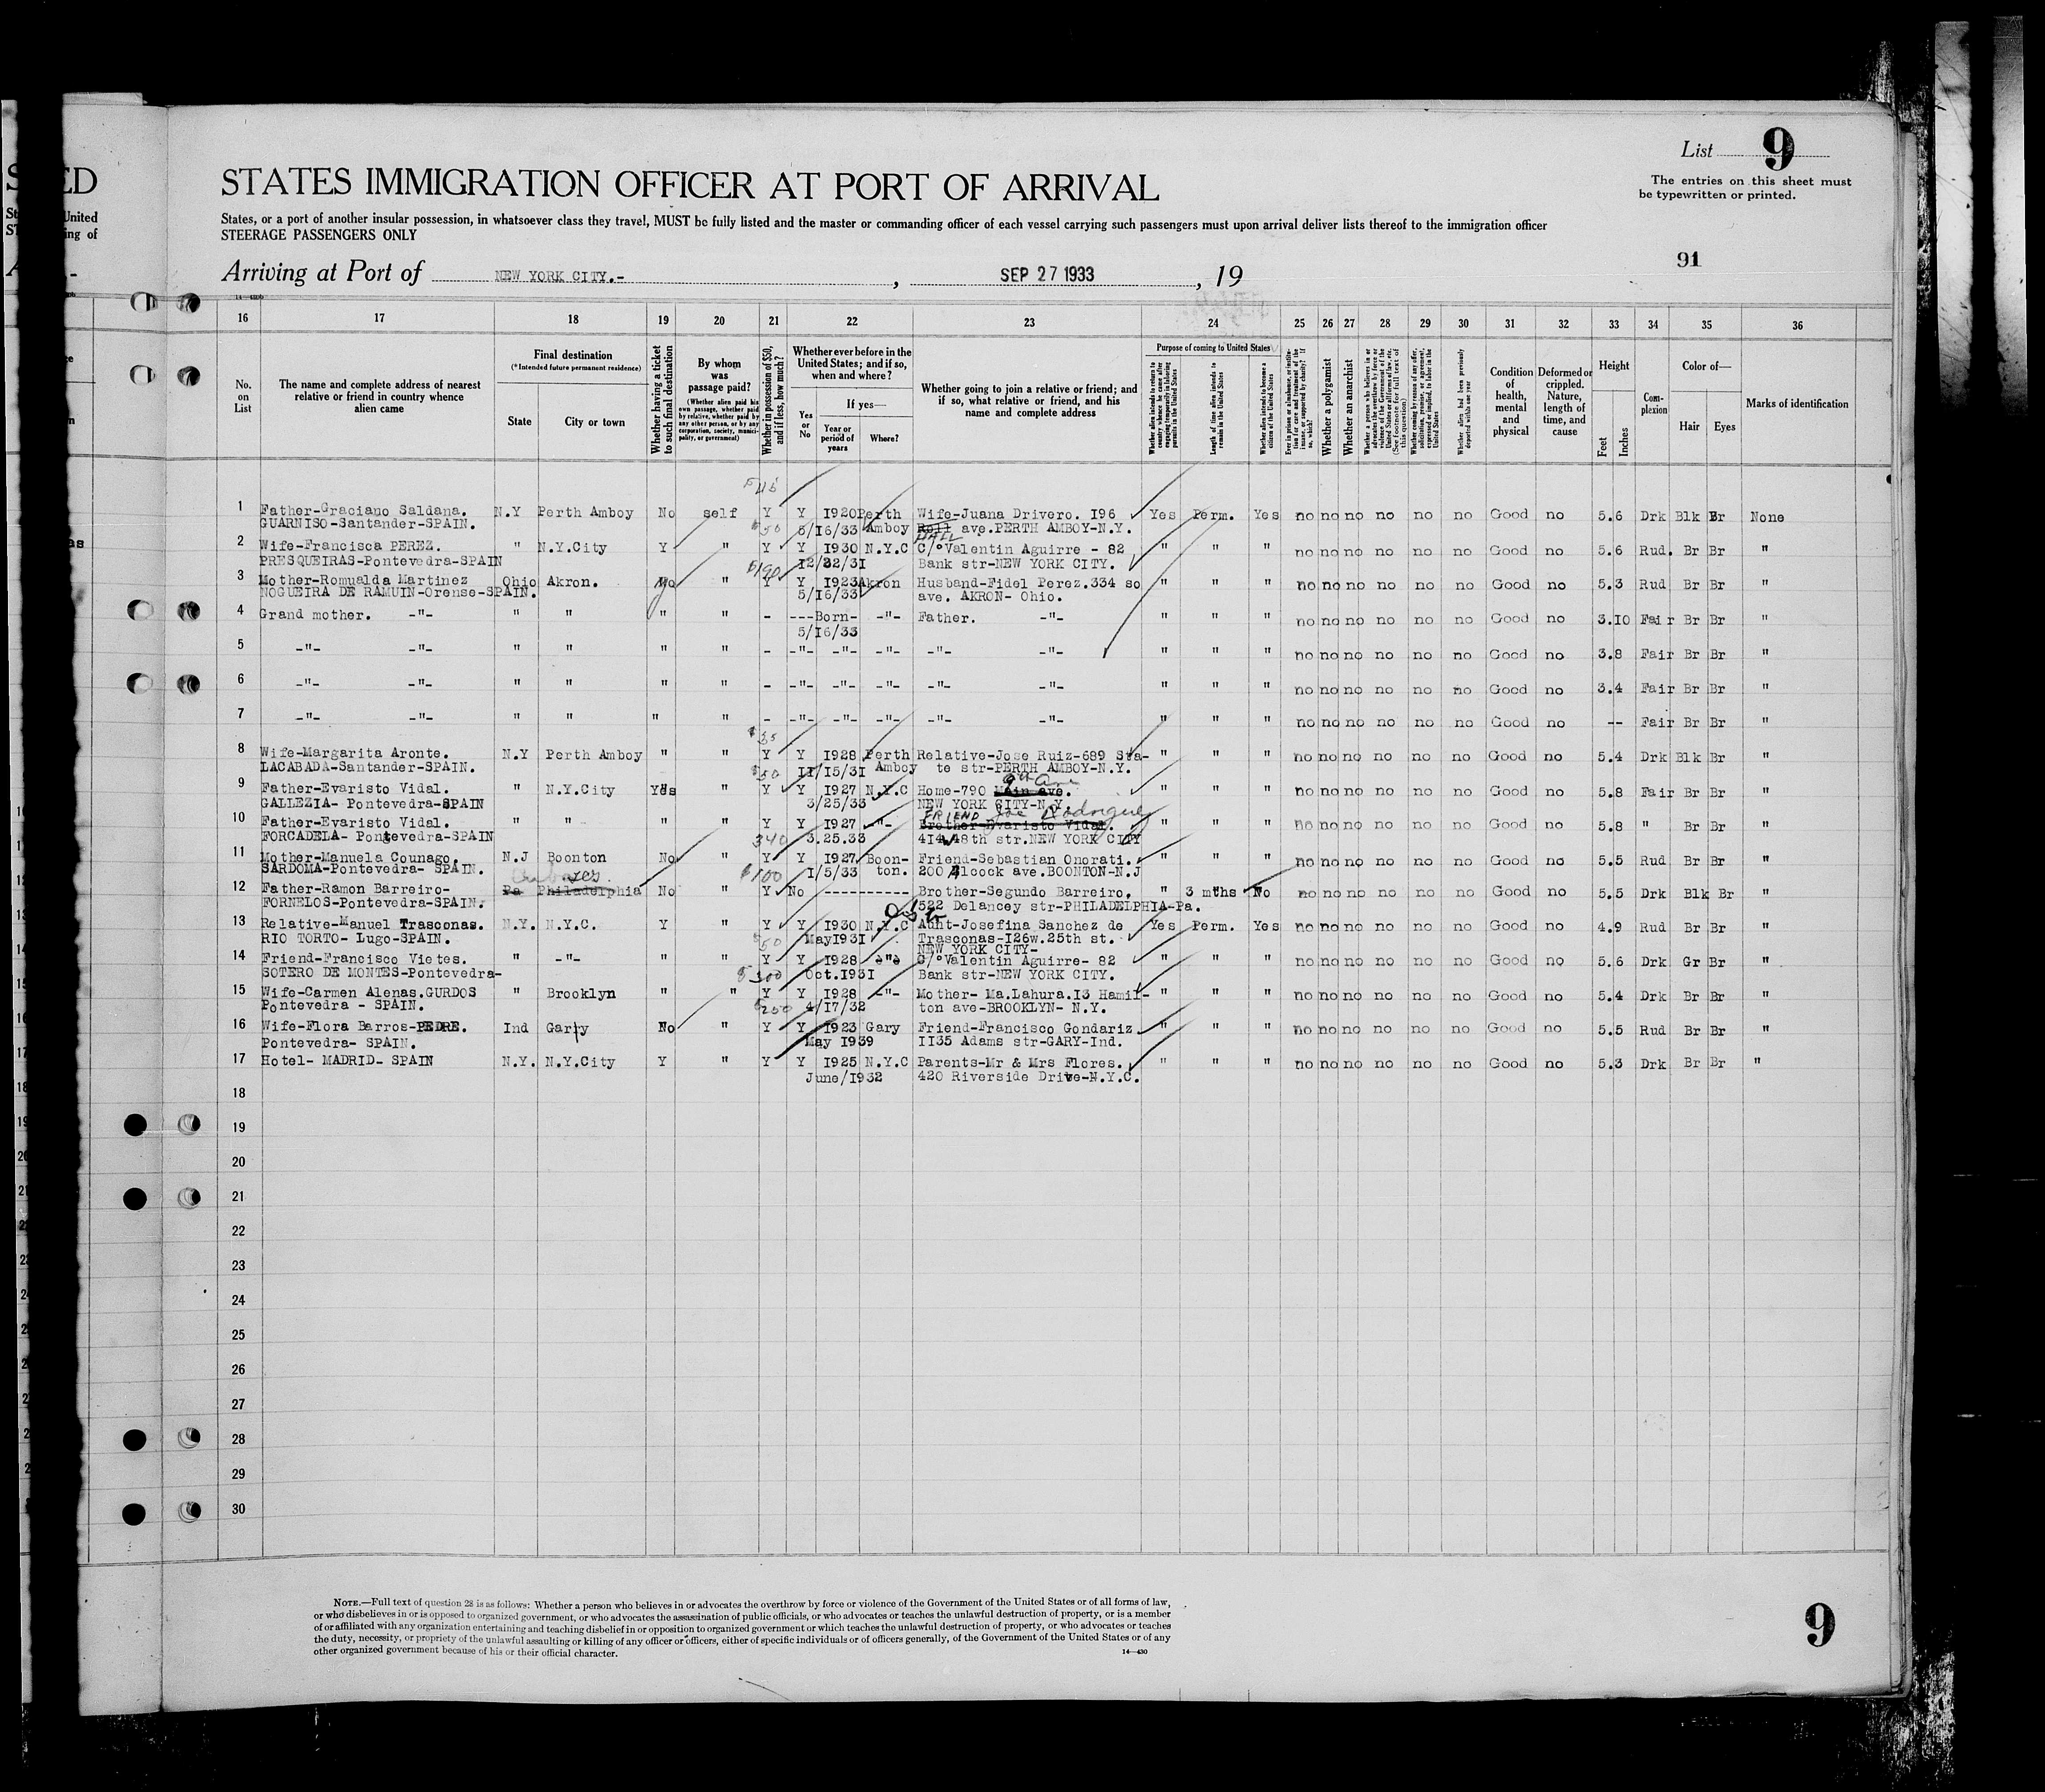 List 9
The entries on this sheet must
be typewritten or printed.
STATES IMMIGRATION OFFICER AT PORT OF ARRIVAL
States, or a port of another insular possession, in whatsoever class they travel, MUST be fully listed and the master or commanding officer of each vessel carrying such passengers must upon arrival deliver lists thereof to the immigration officer
STEERAGE PASSENGERS ONLY
91
Arriving at Port of NEW YORK CITY.- , SEP 27 1933 , 19
16 17 18 19 20 21 22 23 24 25 26 27 28 29 30 31 32 33 34 35 36
No. on List
The name and complete address of nearest relative or friend in country whence alien came
Final destination (*Intended future permanent residence)
State City or town
Whether having a ticket to such final destination
By whom was passage paid?
(Whether alien paid his own passage, whether paid by relative, whether paid by any other person, or by any corporation, society, municipality, or government)
Whether in possession of $50, and if less, how much?
Whether ever before in the United States; and if so, when and where?
Yes or No
If yes—
Year or period of years
Where?
Whether going to join a relative or friend; and if so, what relative or friend, and his name and complete address
Purpose of coming to United States
Whether alien intends to return to country whence he came after engaging temporarily in laboring pursuits in the United States
Length of time alien intends to remain in the United States
Whether alien intends to become a citizen of the United States
Whether a polygamist
Whether an anarchist
Condition of health, mental and physical
Deformed or crippled. Nature, length of time, and cause
Height
Feet Inches
Complexion
Color of—
Hair Eyes
Marks of identification
1 Father-Graciano Saldana. N.Y Perth Amboy No self Y Y 1920 Perth Wife-Juana Drivero. 196 Yes Perm. Yes no no no no no no Good no 5.6 Drk Blk Br None
GUARNISO-Santander-SPAIN. 5/16/33 Amboy Hall ave.PERTH AMBOY-N.Y.
2 Wife-Francisca PEREZ. " N.Y.City Y " $50 Y Y 1930 N.Y.C C/o Valentin Aguirre - 82 " " " no no no no no no Good no 5.6 Rud. Br Br "
PRESQUEIRAS-Pontevedra-SPAIN 12/22/31 Bank str-NEW YORK CITY.
3 Mother-Romualda Martinez Ohio Akron. " $190 Y Y 1923 Akron Husband-Fidel Perez.334 so " " " no no no no no no Good no 5.3 Rud Br Br "
NOGUEIRA DE RAMUIN-Orense-SPAIN. 5/16/33 ave. AKRON- Ohio.
4 Grand mother. -"- " " " " - ---Born- -"- Father. -"- " " " no no no no no no Good no 3.10 Fair Br Br "
5/16/33
5 -"- -"- " " " " - -"- -"- -"- -"- -"- " " " no no no no no no Good no 3.8 Fair Br Br "
6 -"- -"- " " " " - -"- -"- -"- -"- -"- " " " no no no no no no Good no 3.4 Fair Br Br "
7 -"- -"- " " " " - -"- -"- -"- -"- -"- " " " no no no no no no Good no -- Fair Br Br "
8 Wife-Margarita Aronte. N.Y Perth Amboy " " Y Y 1928 Perth Relative-Jose Ruiz-689 Sta- " " " no no no no no no Good no 5.4 Drk Blk Br "
LACABADA-Santander-SPAIN. 11/15/31 Amboy te str-PERTH AMBOY-N.Y.
9 Father-Evaristo Vidal. " N.Y.City Yes " $50 Y Y 1927 N.Y.C Home-790 Main ave. 9th Ave " " " no no no no no no Good no 5.8 Fair Br Br "
GALLEZIA- Pontevedra-SPAIN 3/25/33 NEW YORK CITY-N.Y.
10 Father-Evaristo Vidal. " " " " Y Y 1927 -"- Brother-Evaristo Vidal. FRIEND Joe Rodrigue " " " no no no no no no Good no 5.8 " Br Br "
FORCADELA- Pontevedra-SPAIN 3.25.33 414 W 48th str.NEW YORK CITY
11 Mother-Manuela Counago. N.J Boonton No " 340 Y Y 1927 Boon- Friend-Sebastian Onorati. " " " no no no no no no Good no 5.5 Rud Br Br "
SARDOMA-Pontevedra- SPAIN. 1/5/33 ton. 200 Alcock ave.BOONTON-N.J
12 Father-Ramon Barreiro- Pa Philadelphia No " $100 Y No ----------- Brother-Segundo Barreiro. " 3 mths No no no no no no no Good no 5.5 Drk Blk Br "
FORNELOS-Pontevedra-SPAIN. 1522 Delancey str-PHILADELPHIA-Pa.
13 Relative-Manuel Trasconas. N.Y. N.Y.C. Y " Y Y 1930 N.Y.C Aunt-Josefina Sanchez de Yes Perm. Yes no no no no no no Good no 4.9 Rud Br Br "
RIO TORTO- Lugo-SPAIN. May1931 Trasconas-126w.25th st.
NEW YORK CITY-
14 Friend-Francisco Vietes. " -"- " " $50 Y Y 1928 -"- C/o Valentin Aguirre- 82 " " " no no no no no no Good no 5.6 Drk Gr Br "
SOTERO DE MONTES-Pontevedra- Oct.1931 Bank str-NEW YORK CITY.
15 Wife-Carmen Alenas.GURDOS " Brooklyn " " $300 Y Y 1928 -"- Mother- Ma.Lahura.13 Hamil- " " " no no no no no no Good no 5.4 Drk Br Br "
Pontevedra - SPAIN. 4/17/32 ton ave-BROOKLYN- N.Y.
16 Wife-Flora Barros-PEDRE. Ind Gary No " $200 Y Y 1923 Gary Friend-Francisco Gondariz " " " no no no no no no Good no 5.5 Rud Br Br "
Pontevedra- SPAIN. May 1939 1135 Adams str-GARY-Ind.
17 Hotel- MADRID- SPAIN N.Y. N.Y.City Y " Y Y 1925 N.Y.C Parents-Mr & Mrs Flores. " " " no no no no no no Good no 5.3 Drk Br Br "
June/1932 420 Riverside Drive-N.Y.C.
18
19
20
21
22
23
24
25
26
27
28
29
30
NOTE.—Full text of question 28 is as follows: Whether a person who believes in or advocates the overthrow by force or violence of the Government of the United States or of all forms of law,
or who disbelieves in or is opposed to organized government, or who advocates the assassination of public officials, or who advocates or teaches the unlawful destruction of property, or is a member
of or affiliated with any organization entertaining and teaching disbelief in or opposition to organized government or which teaches the unlawful destruction of property, or who advocates or teaches
the duty, necessity, or propriety of the unlawful assaulting or killing of any officer or officers, either of specific individuals or of officers generally, of the Government of the United States or of any
other organized government because of his or their official character.
14—430
9